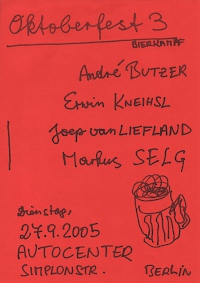 Oktoberfest 3
BIERKAMPF
André BUTZER
Erwin KNEIHSL
Joep van LIEFLAND
Markus SELG
Dienstag,
27.9.2005
AUTOCENTER
SIMPLONSTR. BERLIN